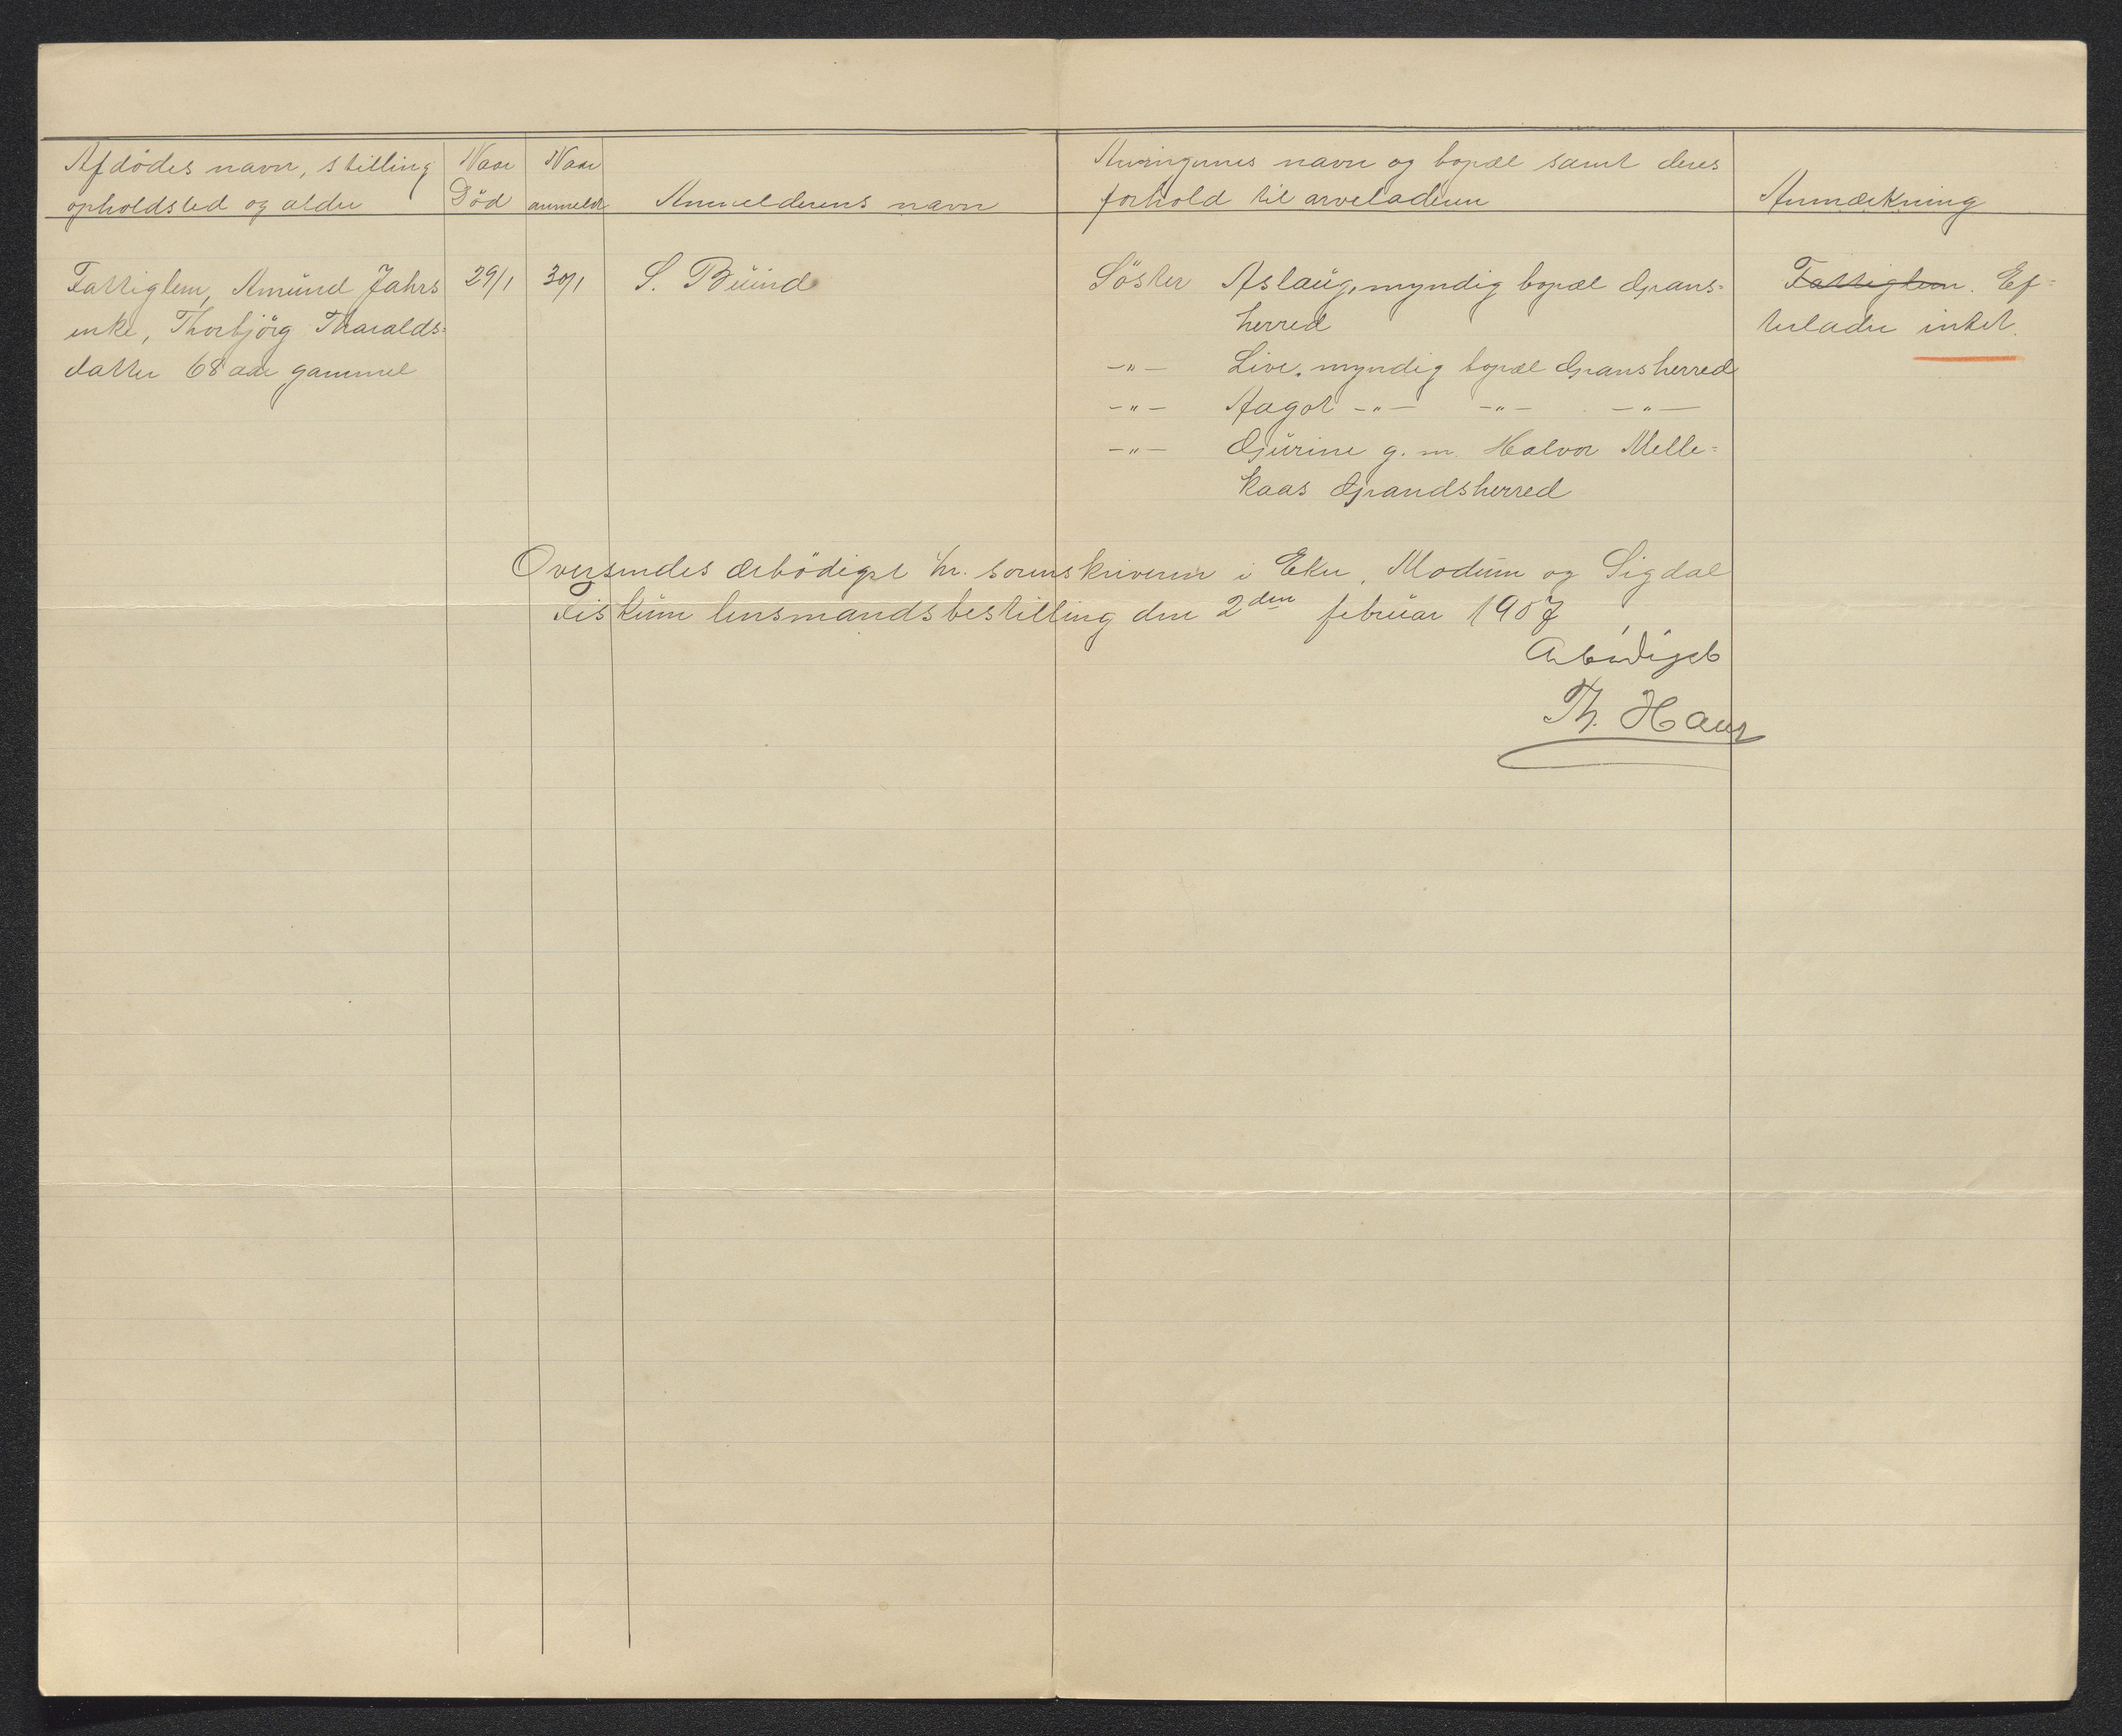 Afdødes navn, stilling
opholdsted og alder
Naar
Död
Naar
anmeldt
Anmelderens navn
Arvingernes navn og bopæl samt deres
forhold til arveladeren
Anmærkning
Fattiglem, Amund Jahrs
enke, Thorbjörg Tharalds-
datter 68 aar gammel
29/1
30/1
S. Buind
Söster Aslaug, myndig bopæl Grans-
herred
-"- Live, myndig bopæl Gransherred
-"- Aagot -"- -"- -"-
-"- Gjurine g. m. Halvor Melle-
kaas Grandsherred
Fattiglem. Ef-
terlader intet.
Oversendes ærbödigst hr. sorenskriveren i Eker, Modum og Sigdal
Fiskum lensmandsbestilling den 2den februar 1907
Ærbödigst
Th. Haus